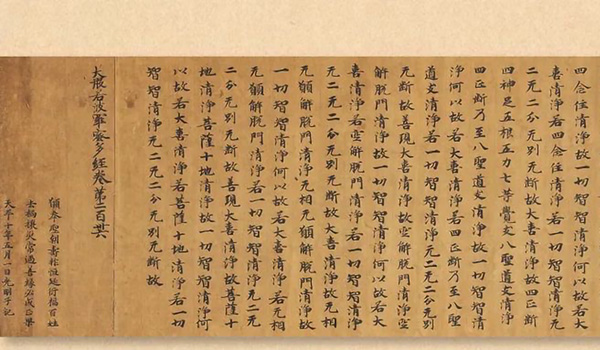 四念住清淨故一切智智清淨何以故若大
喜清淨若四念住清淨若一切智智清淨无
二无二分无別无斷故大喜清淨故四正斷
四神足五根五力七等覺支八聖道支清淨
四正斷乃至八聖道支清淨故一切智智清
淨何以故若大喜清淨若四正斷乃至八聖
道支清淨若一切智智清淨无二无二分无別
无斷故善現大喜清淨故空解脫門清淨空
解脫門清淨故一切智智清淨何以故若大
喜清淨若空解脫門清淨若一切智智清淨
无二无二分无別无斷故大喜清淨故无相
无願解脫門清淨无相无願解脫門清淨故
一切智智清淨何以故若大喜清淨若无相
无願解脫門清淨若一切智智清淨无二无
二分无別无斷故善現大喜清淨故菩薩十
地清淨菩薩十地清淨故一切智智清淨何
以故若大喜清淨若菩薩十地清淨若一切
智智清淨无二无二分无別无斷故
大般若波羅蜜多經卷第二百
願奉聖朝壽福百姓
災常遇善緣必成正果
天平十年五月一日光明子記